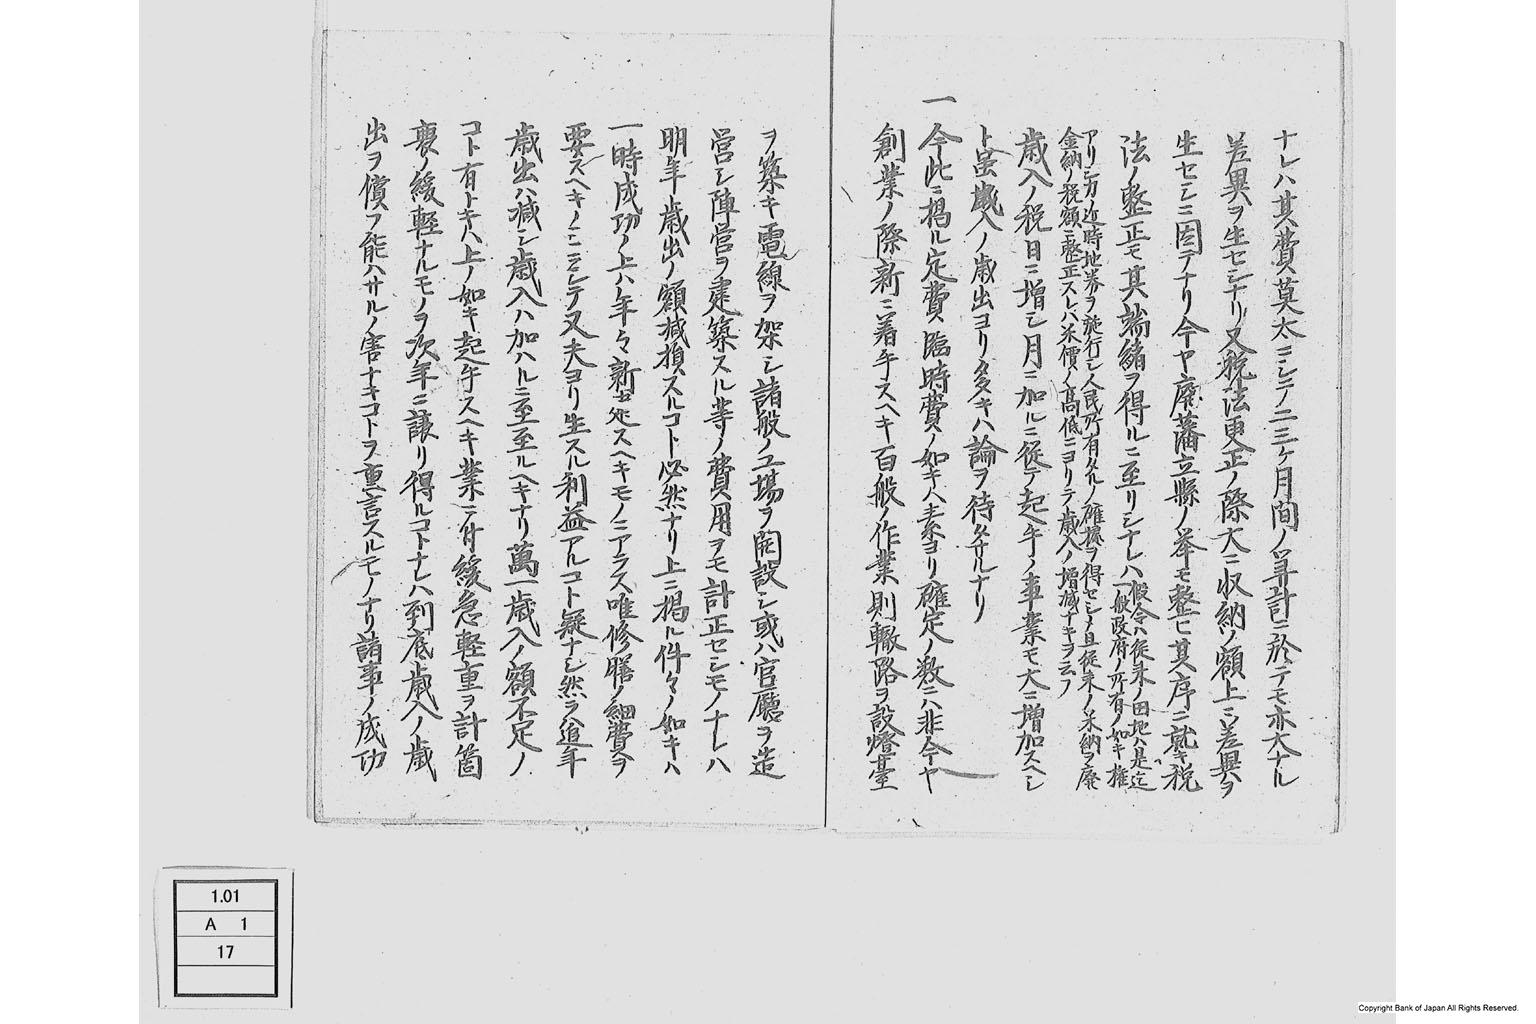 ナレハ其費莫大ニシテ二三ヶ月間ノ算計ニ於テモ亦大ナル
差異ヲ生セシナリ又税法更正ノ際大ニ収納ノ額上ニ差異ヲ
生セシニ因テナリ今ヤ廃藩立縣ノ挙モ整ヒ其序ニ就キ税
法ノ整正モ其端緒ヲ得ルニ至リシナレハ
假令ハ従来ノ田地ハ是迄
一般政府ノ所有ノ如キ権
アリシカ近時地券ヲ施行シ人民所有タルノ確據ヲ得セシメ且従来ノ米納ヲ廃
金納ノ税額ニ整正スレハ米價ノ高低ニヨリテ歳入ノ増減ナキヲ云フ
歳入ノ税日ニ増シ月ニ加ルニ従テ起手ノ事業モ大ニ増加スヘシ
ト虽歳入ノ歳出ヨリ多キハ論ヲ待タサルナリ
一 今此ニ掲ル定費臨時費ノ如キハ素ヨリ確定ノ数ニハ非今ヤ
創業ノ際新ニ着手スヘキ百般ノ作業則轍路ヲ設燈臺
ヲ築キ電線ヲ架シ諸般ノ工場ヲ開設シ或ハ官廳ヲ造
営シ陣営ヲ建築スル等ノ費用ヲモ計正セシモノナレハ
明年歳出ノ額減損スルコト必然ナリ上ニ掲ル件々ノ如キハ
一時成功ノ上ハ年々新ニ起スヘキモノニアラス唯修膳ノ細費ヲ
要スヘキノミニシテ又夫ヨリ生スル利益アルコト疑ナシ然ラハ追年
歳出ハ减シ歳入ハ加ハルニ至至ルヘキナリ萬一歳入ノ額不足ノ
コト有トキハ上ノ如キ起手スヘキ業ニ付緩急軽重ヲ計箇
裏ノ緩軽ナルモノヲ次年ニ譲リ得ルコトナレハ到底歳入ノ歳
出ヲ償フ能ハサルノ害ナキコトヲ重言スルモノナリ諸事ノ成功
1.01
A 1
17
Copyright Bank of Japan All Rights Reserved.